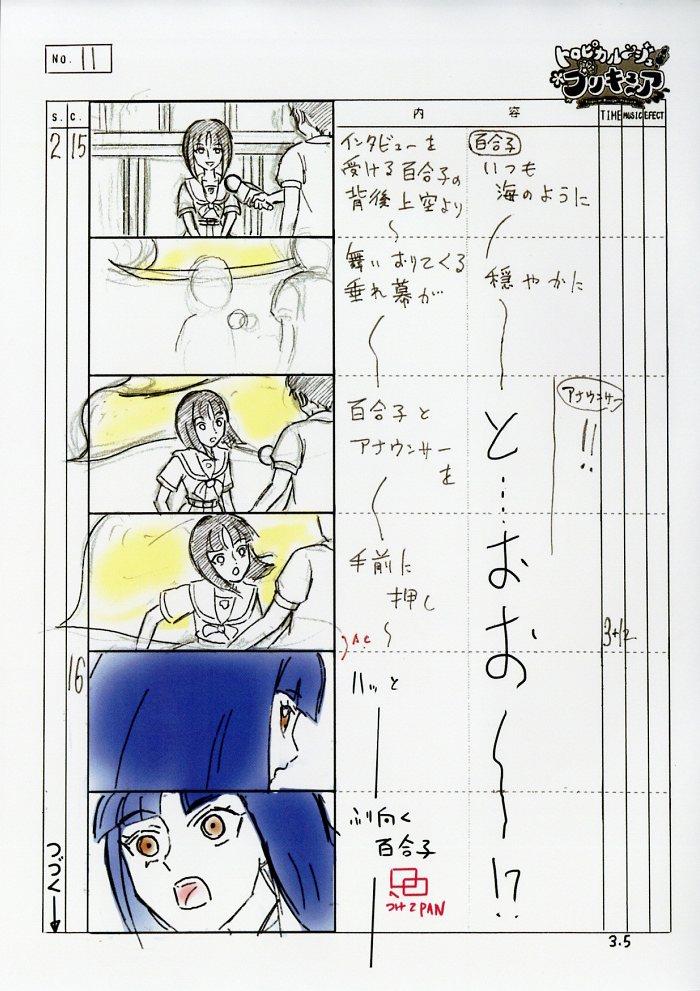 NO. 11
トロピカル〜ジュ
プリキュア
S. C. 内容 TIME MUSIC EFECT
2 15
インタビューを
受ける百合子の
背後上空より
舞いおりてくる
垂れ幕が
百合子と
アナウンサー
を
手前に
押し
A.C
百合子
いつも
海のように
穏やかに
と…おお〜!?
アナウンサー
!!
3+12
16
ハッと
ふり向く
百合子
つけてPAN
つづく
3.5